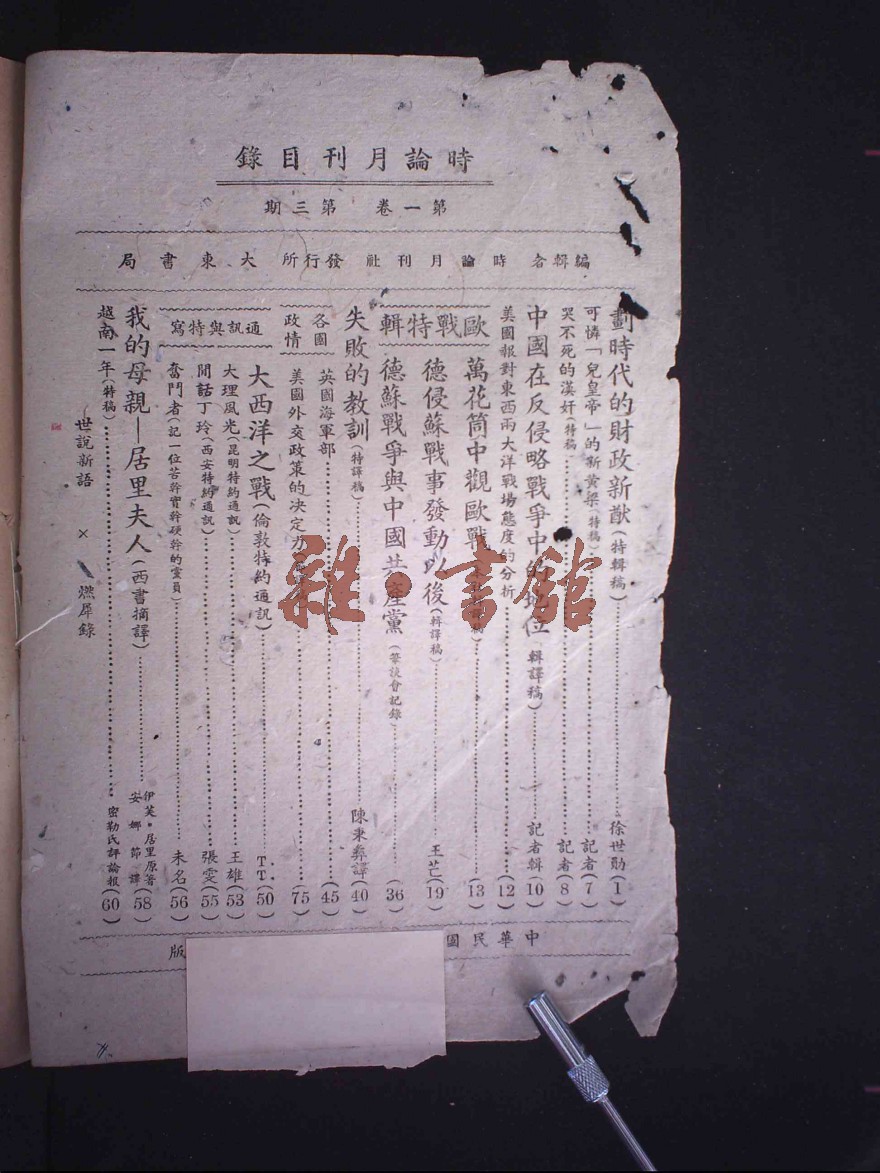 時論月刊目錄
第一卷 第三期
編輯者 時論月刊社 發行所 大東書局
劃時代的財政新猷(特輯稿)徐世勛(1)
可憐「兒皇帝」的新黃梁(特稿)記者(7)
哭不死的漢奸(特稿)記者(8)
中國在反侵略戰爭中的地位 輯譯稿)記者輯(10)
美國報對東西兩大洋戰場態度的分析(12)
歐戰特輯
萬花筒中觀歐戰(13)
德侵蘇戰事發動以後(輯譯稿)王芒(19)
德蘇戰爭與中國共產黨(筆談會記錄)(36)
失敗的教訓(特譯稿)陳秉彝譯(40)
各國政情
英國海軍部(45)
美國外交政策的決定力(75)
通訊與特寫
大西洋之戰(倫敦特約通訊)T.T.(50)
大理風光(昆明特約通訊)王雄(53)
閒話丁玲(西安特約通訊)張雯(55)
奮鬥者(記一位苦幹實幹硬幹的黨員)未名(56)
我的母親—居里夫人(西書摘譯)伊芙·居里原著 安娜節譯(58)
越南一年(特稿)密勒氏評論報(60)
世說新語 × 燃犀錄
中華民國
版
雜·書館